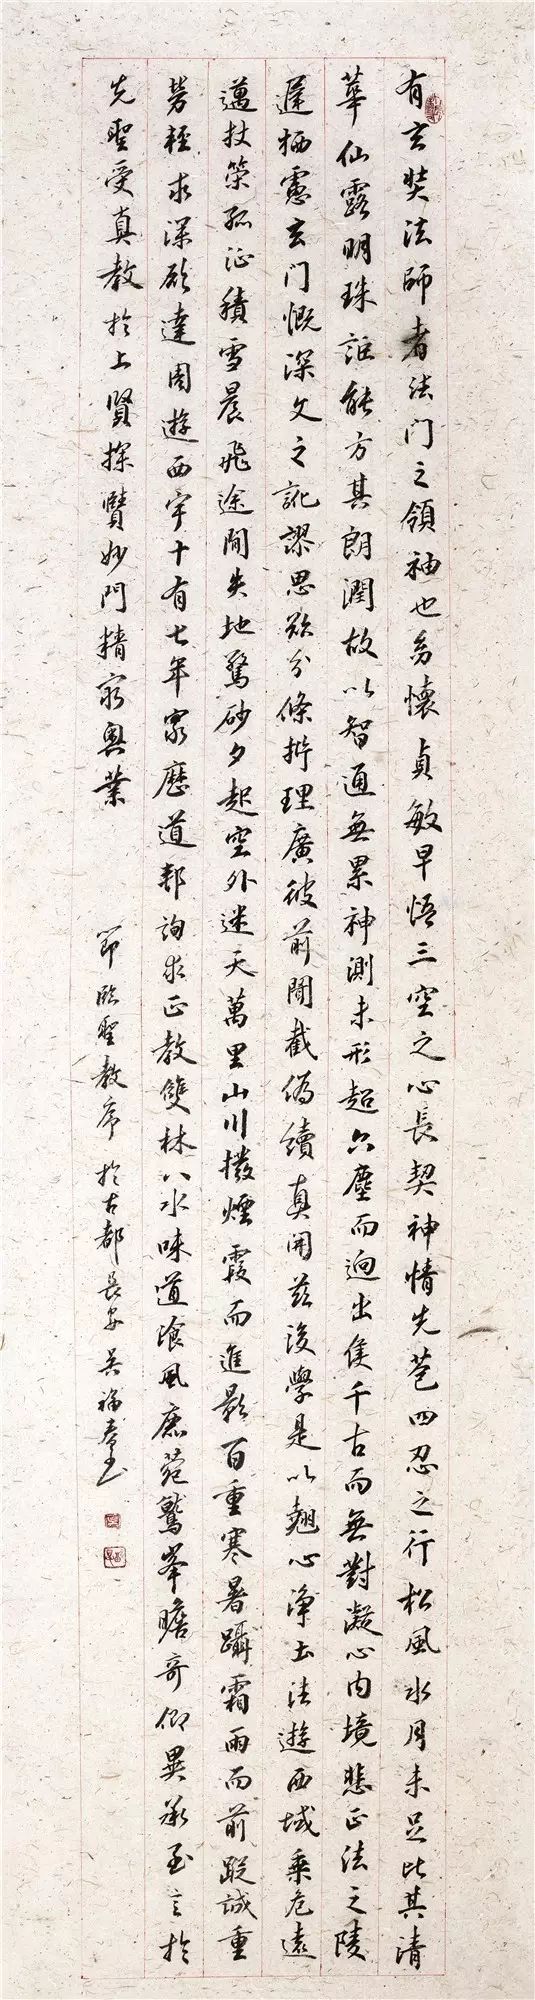 有玄奘法師者法门之領袖也幼懷貞敏早悟三空之心長契神情先苞四忍之行松風水月未足比其清
華仙露明珠詎能方其朗潤故以智通無累神測未形超六塵而迥出隻千古而無對凝心內境悲正法之陵
遲栖慮玄门慨深文之訛謬思欲分條析理廣彼前聞截偽續真開茲後學是以翹心淨土法遊西域乘危遠
邁杖策孤征積雪晨飛途間失地驚砂夕起空外迷天萬里山川撥煙霞而進影百重寒暑躡霜雨而前蹤誠重
勞輕求深願達周遊西宇十有七年窮歷道邦詢求正教雙林八水味道飡風鹿菀鷲峯瞻奇仰異承至言於
先聖受真教於上賢探賾妙門精窮奧業
節臨聖教序於古都長安吴福春书